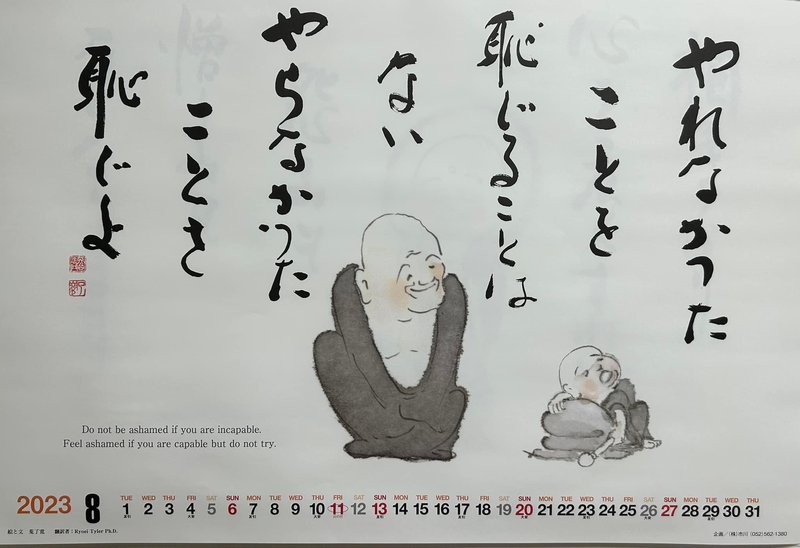 やれなかった
ことを
恥じることは
ない
やらなかった
ことを
恥じよ
Do not be ashamed if you are incapable.
Feel ashamed if you are capable but do not try.
2023 8
TUE WED THU FRI SAT SUN MON TUE WED THU FRI SAT SUN MON TUE WED THU FRI SAT SUN MON TUE WED THU FRI SAT SUN MON TUE WED THU
1 2 3 4 5 6 7 8 9 10 11 12 13 14 15 16 17 18 19 20 21 22 23 24 25 26 27 28 29 30 31
絵と文 翻訳者：Ryosei Tyler Ph.D.
企画／(株)市川 (052)562-1380